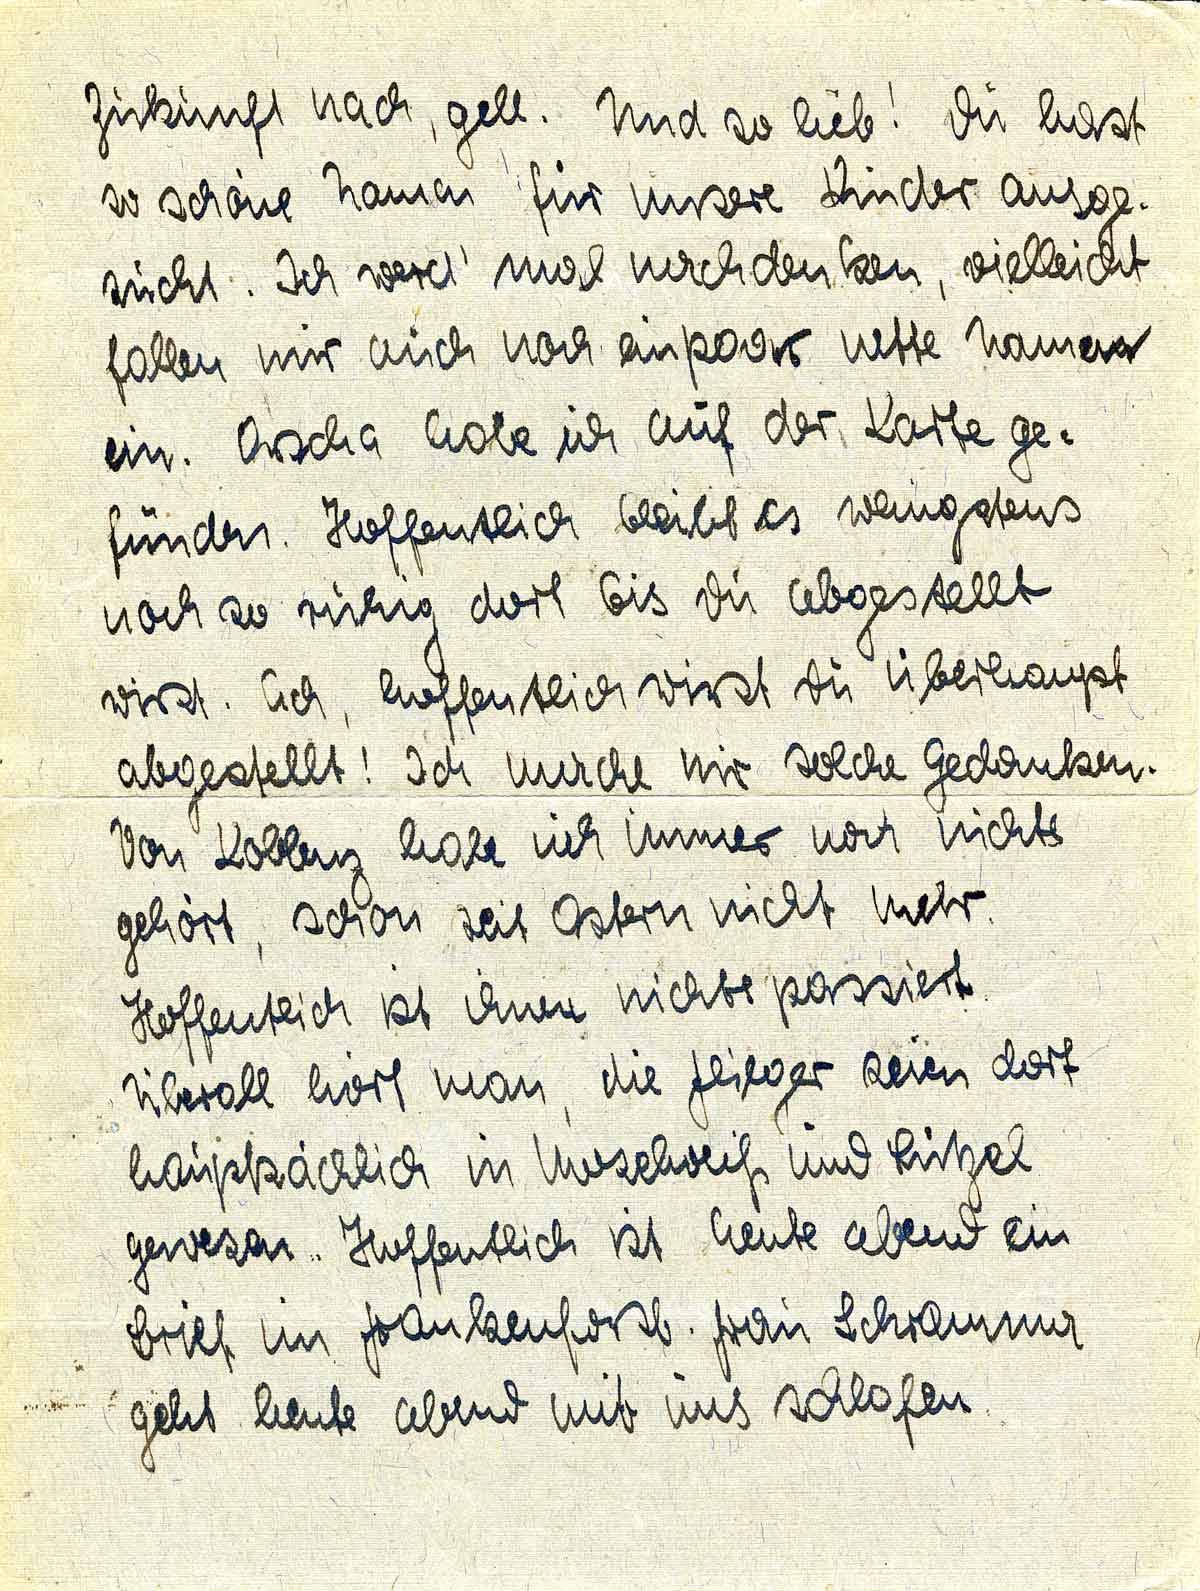 Zukunft nach, gell. Und so lieb! Du hast
so schöne Namen für unsere Kinder ausge-
sucht. Ich werd' mal nachdenken, vielleicht
fallen mir auch noch ein paar nette Namen
ein. Orscha habe ich auf der Karte ge-
funden. Hoffentlich bleibt es weingstens
noch so ruhig dort bis Du abgestellt
wirst. Ach, hoffentlich wirst Du überhaupt
abgestellt! Ich mache mir solche Gedanken.
Von Koblenz habe ich immer noch nichts
gehört, schon seit Ostern nicht mehr.
Hoffentlich ist ihnen nichts passiert.
Überall hört man, die Flieger seien dort
haupsächlich in Moselweiß und Lützel
gewesen. Hoffentlich ist heute abend ein
Brief im Frankenforst. Frau Schramma
geht heute abend mit uns schlafen.